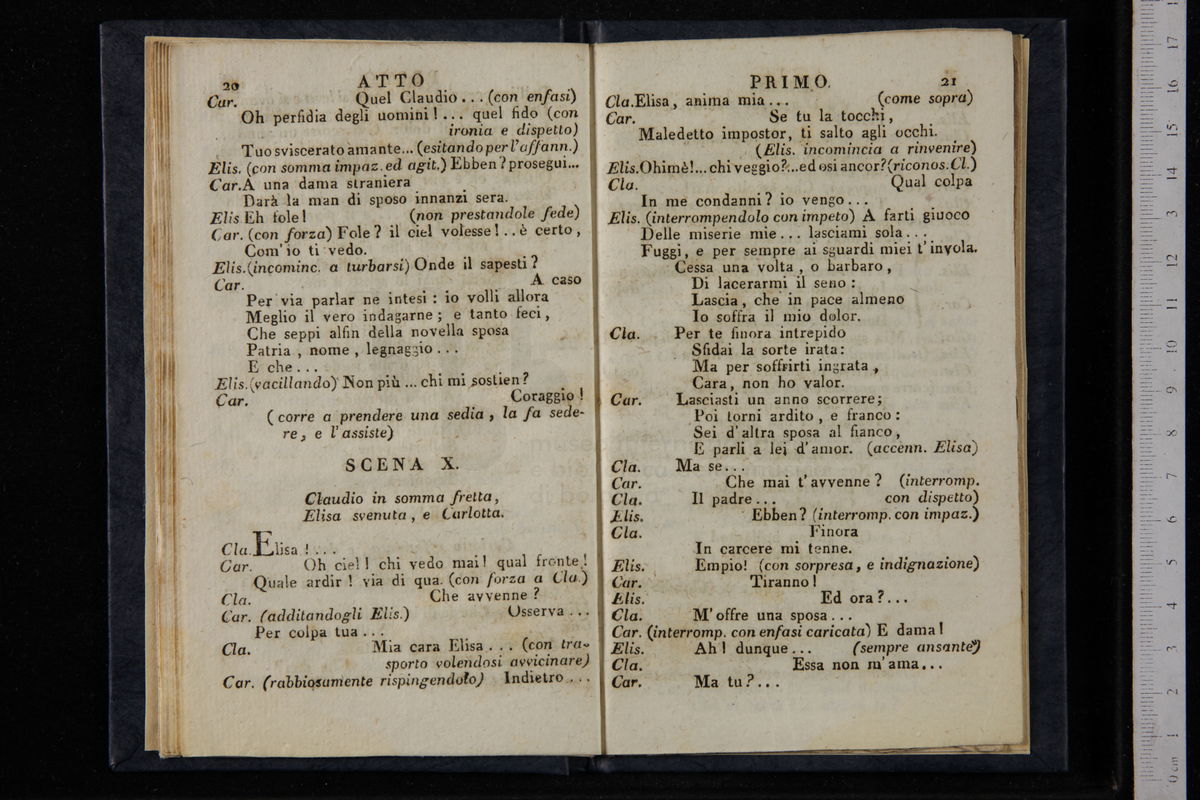 20
ATTO
Car. Quel Claudio... (con enfasi)
Oh perfidia degli uomini!... quel fido (con
ironia e dispetto)
Tuo sviscerato amante... (esitando per l'affann.)
Elis. (con somma impaz. ed agit.) Ebben? prosegui...
Car. A una dama straniera
Darà la man di sposo innanzi sera.
Elis Eh fole! (non prestandole fede)
Car. (con forza) Fole? il ciel volesse!.. è certo,
Com'io ti vedo.
Elis. (incominc. a turbarsi) Onde il sapesti?
Car. A caso
Per via parlar ne intesi: io volli allora
Meglio il vero indagarne; e tanto feci,
Che seppi alfin della novella sposa
Patria, nome, legnaggio...
E che...
Elis. (vacillando) Non più... chi mi sostien?
Car. Coraggio!
(corre a prendere una sedia, la fa sede-
re, e l'assiste)
SCENA X.
Claudio in somma fretta,
Elisa svenuta, e Carlotta.
Cla. Elisa!...
Car. Oh ciel! chi vedo mai! qual fronte!
Quale ardir! via di qua. (con forza a Cla.)
Cla. Che avvenne?
Car. (additandogli Elis.) Osserva...
Per colpa tua...
Cla. Mia cara Elisa... (con tra-
sporto volendosi avvicinare)
Car. (rabbiosamente rispingendolo) Indietro...
PRIMO.
21
Cla. Elisa, anima mia... (come sopra)
Car. Se tu la tocchi,
Maledetto impostor, ti salto agli occhi.
(Elis. incomincia a rinvenire)
Elis. Ohimè!... chi veggio?... ed osi ancor? (riconos. Cl.)
Cla. Qual colpa
In me condanni? io vengo...
Elis. (interrompendolo con impeto) A farti giuoco
Delle miserie mie... lasciami sola...
Fuggi, e per sempre ai sguardi miei t'invola.
Cessa una volta, o barbaro,
Di lacerarmi il seno:
Lascia, che in pace almeno
Io soffra il mio dolor.
Cla. Per te finora intrepido
Sfidai la sorte irata:
Ma per soffrirti ingrata,
Cara, non ho valor.
Car. Lasciasti un anno scorrere;
Poi torni ardito, e franco:
Sei d'altra sposa al fianco,
E parli a lei d'amor. (accenn. Elisa)
Cla. Ma se...
Car. Che mai t'avvenne? (interromp.
Cla. Il padre... con dispetto)
Elis. Ebben? (interromp. con impaz.)
Cla. Finora
In carcere mi tenne.
Elis. Empio! (con sorpresa, e indignazione)
Car. Tiranno!
Elis. Ed ora?...
Cla. M'offre una sposa...
Car. (interromp. con enfasi caricata) E dama!
Elis. Ah! dunque... (sempre ansante)
Cla. Essa non m'ama...
Car. Ma tu?...